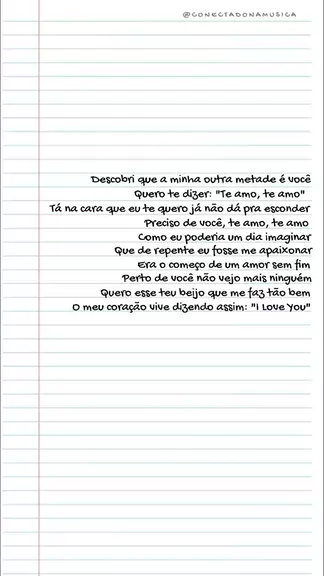 @CONECTADONAMUSICA
Descobri que a minha outra metade é você
Quero te dizer: "Te amo, te amo"
Tá na cara que eu te quero já não dá pra esconder
Preciso de você, te amo, te amo
Como eu poderia um dia imaginar
Que de repente eu fosse me apaixonar
Era o começo de um amor sem fim
Perto de você não vejo mais ninguém
Quero esse teu beijo que me faz tão bem
O meu coração vive dizendo assim: "I Love You"